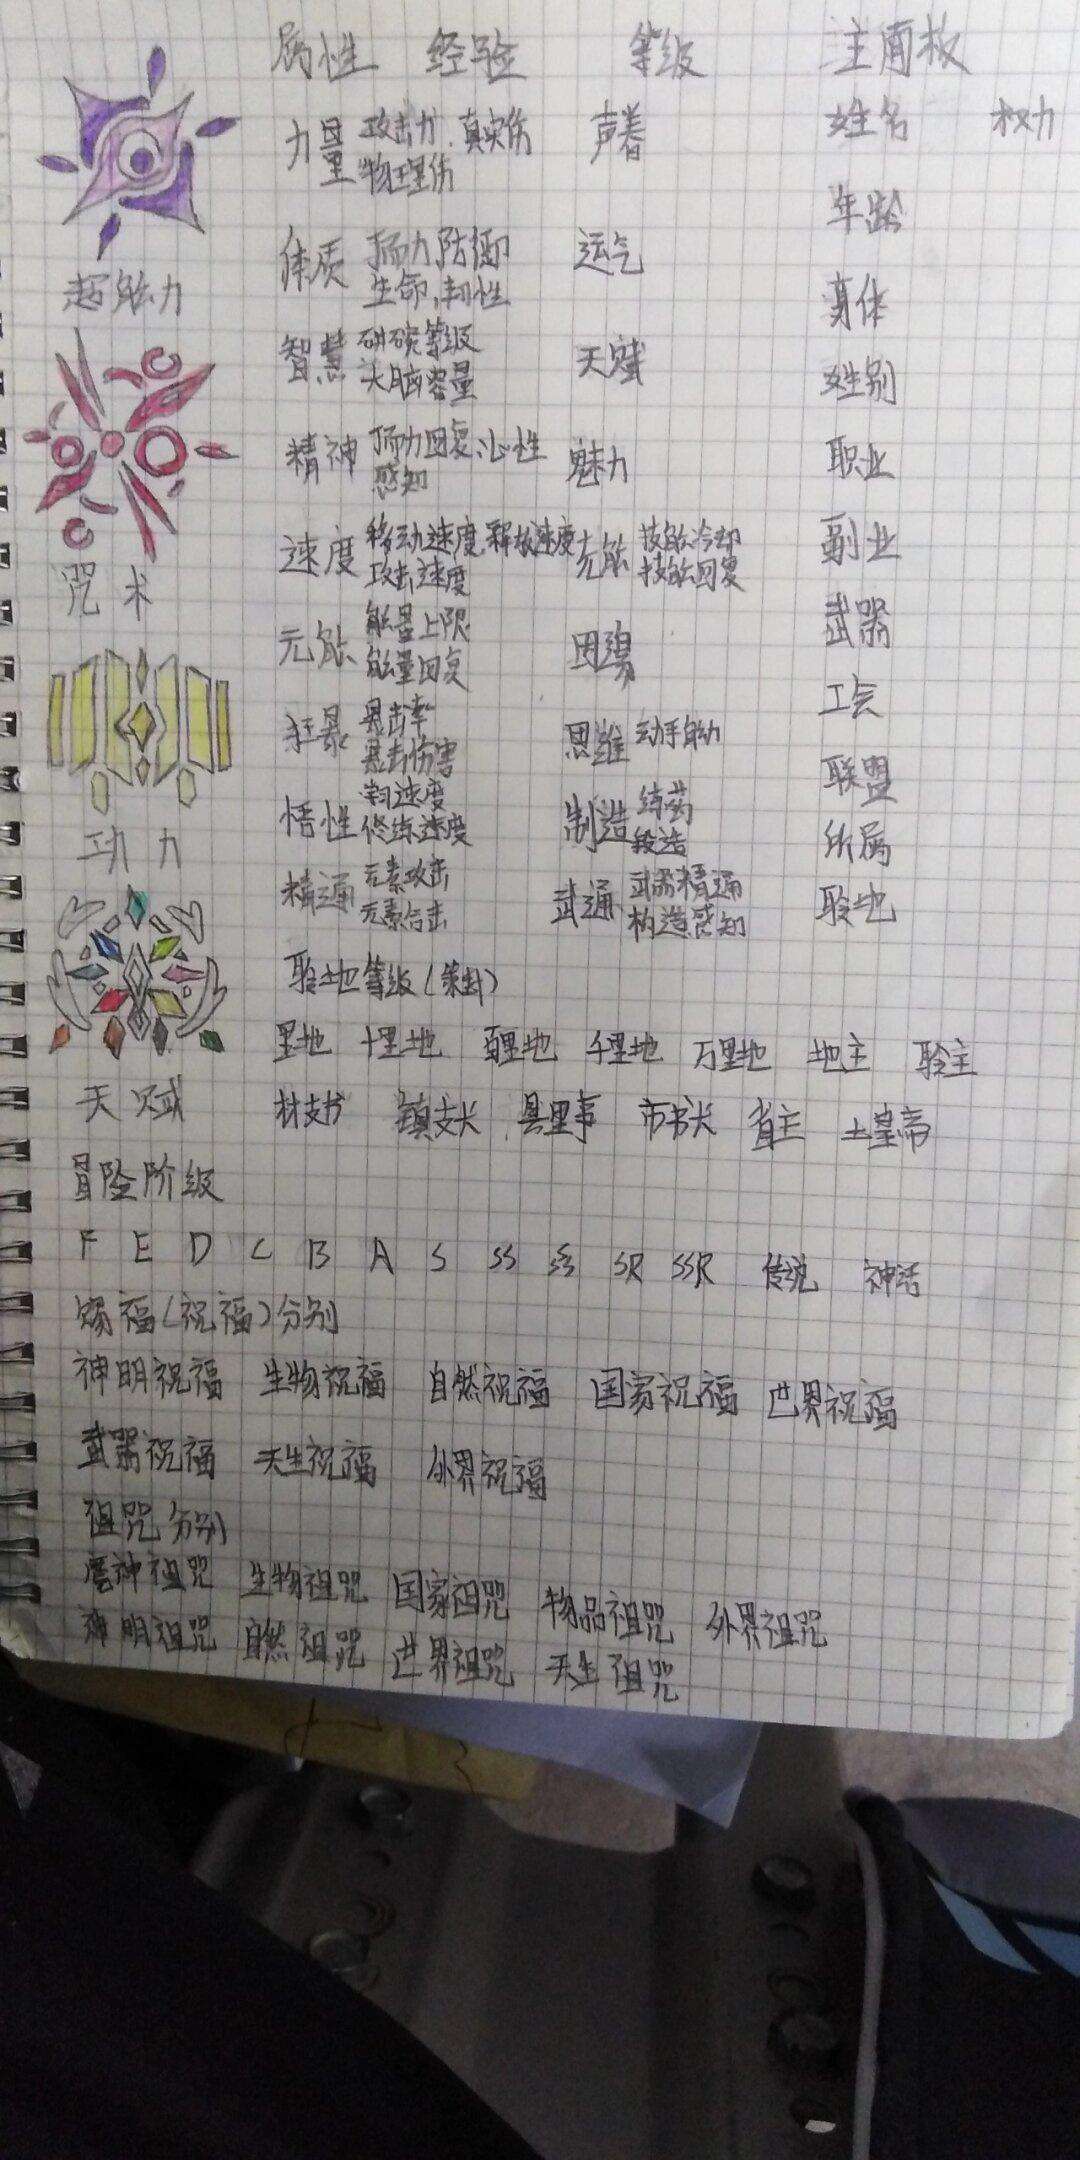 属性 经验 等级 主面板
力量 攻击力、真实伤 声着 姓名 权力
物理伤
年龄
体质 防御 运气
生命,韧性
超能力
身体
智慧 等级 天赋
大脑容量
姓别
精神 回复,心性 魅力
感知
职业
速度 移动速度,释放速度 充能 技能冷却
攻击速度 技能回复
副业
咒术
元能 能量上限
能量回复
武器
工会
狂暴 暴击率 思维 动手能力
暴击伤害
联盟
悟性 学习速度 制造 练药
修练速度 段造
所属
功力
精通 元素攻击 武通 武器精通
元素合击 构造感知
聆地
聆地等级(策封)
里地 十里地 百里地 千里地 万里地 地主 聆主
天赋
村支书 镇支长 县里事 市书长 省主 土皇帝
冒险阶级
F E D C B A S SS SR SSR 传说 神话
赐福(祝福)分别
神明祝福 生物祝福 自然祝福 国家祝福 世界祝福
武器祝福 天生祝福 外界祝福
诅咒分别
魔神诅咒 生物诅咒 国家诅咒 物品诅咒 外界诅咒
神明诅咒 自然诅咒 世界诅咒 天生诅咒